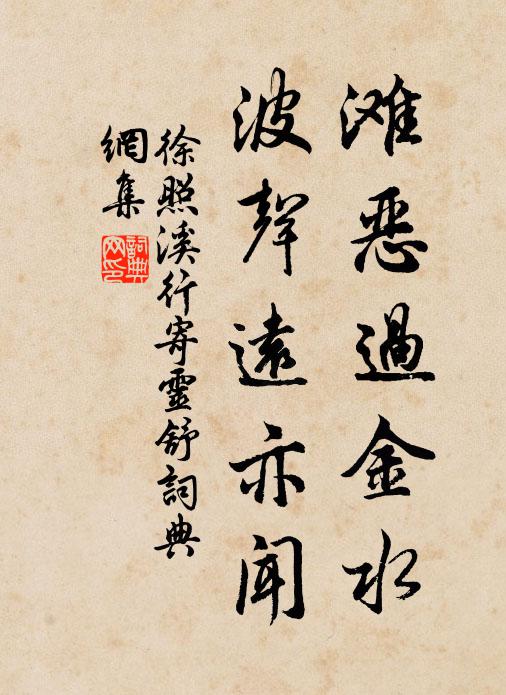 滩恶過金水
波聲遠亦聞
徐照溪行寄靈舒詞典
網集
詞典网印